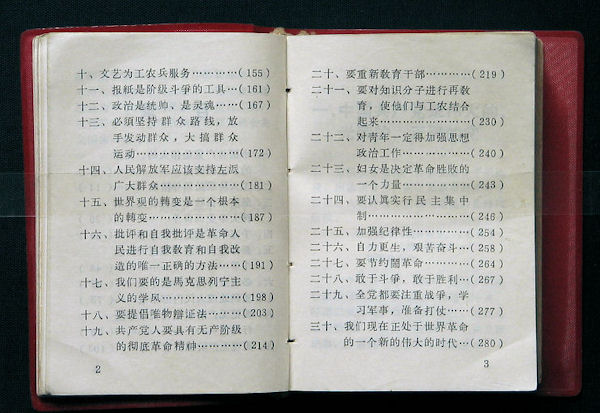 十、文艺为工农兵服务…………(155)
十一、报纸是阶级斗爭的工具…(161)
十二、政治是统帅、是灵魂……(167)
十三、必须坚持群众路线，放
手发动群众，大搞群众
运动………………………(172)
十四、人民解放军应该支持左派
广大群众…………………(181)
十五、世界观的轉变是一个根本
的轉变……………………(187)
十六、批评和自我批评是革命人
民进行自我敎育和自我改
造的唯一正确的方法……(191)
十七、我们要的是馬克思列宁主
义的学风…………………(198)
十八、要提倡唯物辩证法………(203)
十九、共产党人要具有无产阶级
的彻底革命精神…………(214)
2
二十、要重新敎育干部…………(219)
二十一、要对知识分子进行再敎
育，使他们与工农结合
起来……………………(230)
二十二、对青年一定得加强思想
政治工作………………(240)
二十三、妇女是决定革命胜敗的
一个力量………………(243)
二十四、要认眞实行民主集中
制………………………(246)
二十五、加强纪律性……………(254)
二十六、自力更生，艰苦奋斗…(258)
二十七、要节约鬧革命…………(264)
二十八、敢于斗爭，敢于胜利…(267)
二十九、全党都要注重战爭，学
习军事，准备打仗……(277)
三十、我们现在正处于世界革命
的一个新的伟大的时代…(280)
3